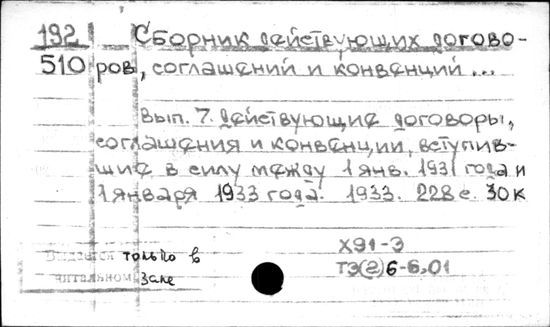 192 Сборник действующих догово-
510 ров, соглашений и конвенций ...
Вып. 7. Действующие договоры,
соглашения и конвенции, вступив-
шие в силу между 1 янв. 1931 года и
1 января 1933 года. 1933. 228 с. 30 к
Х91-3
Выдается только в
ТЭ(2)6-6,01
читальном зале